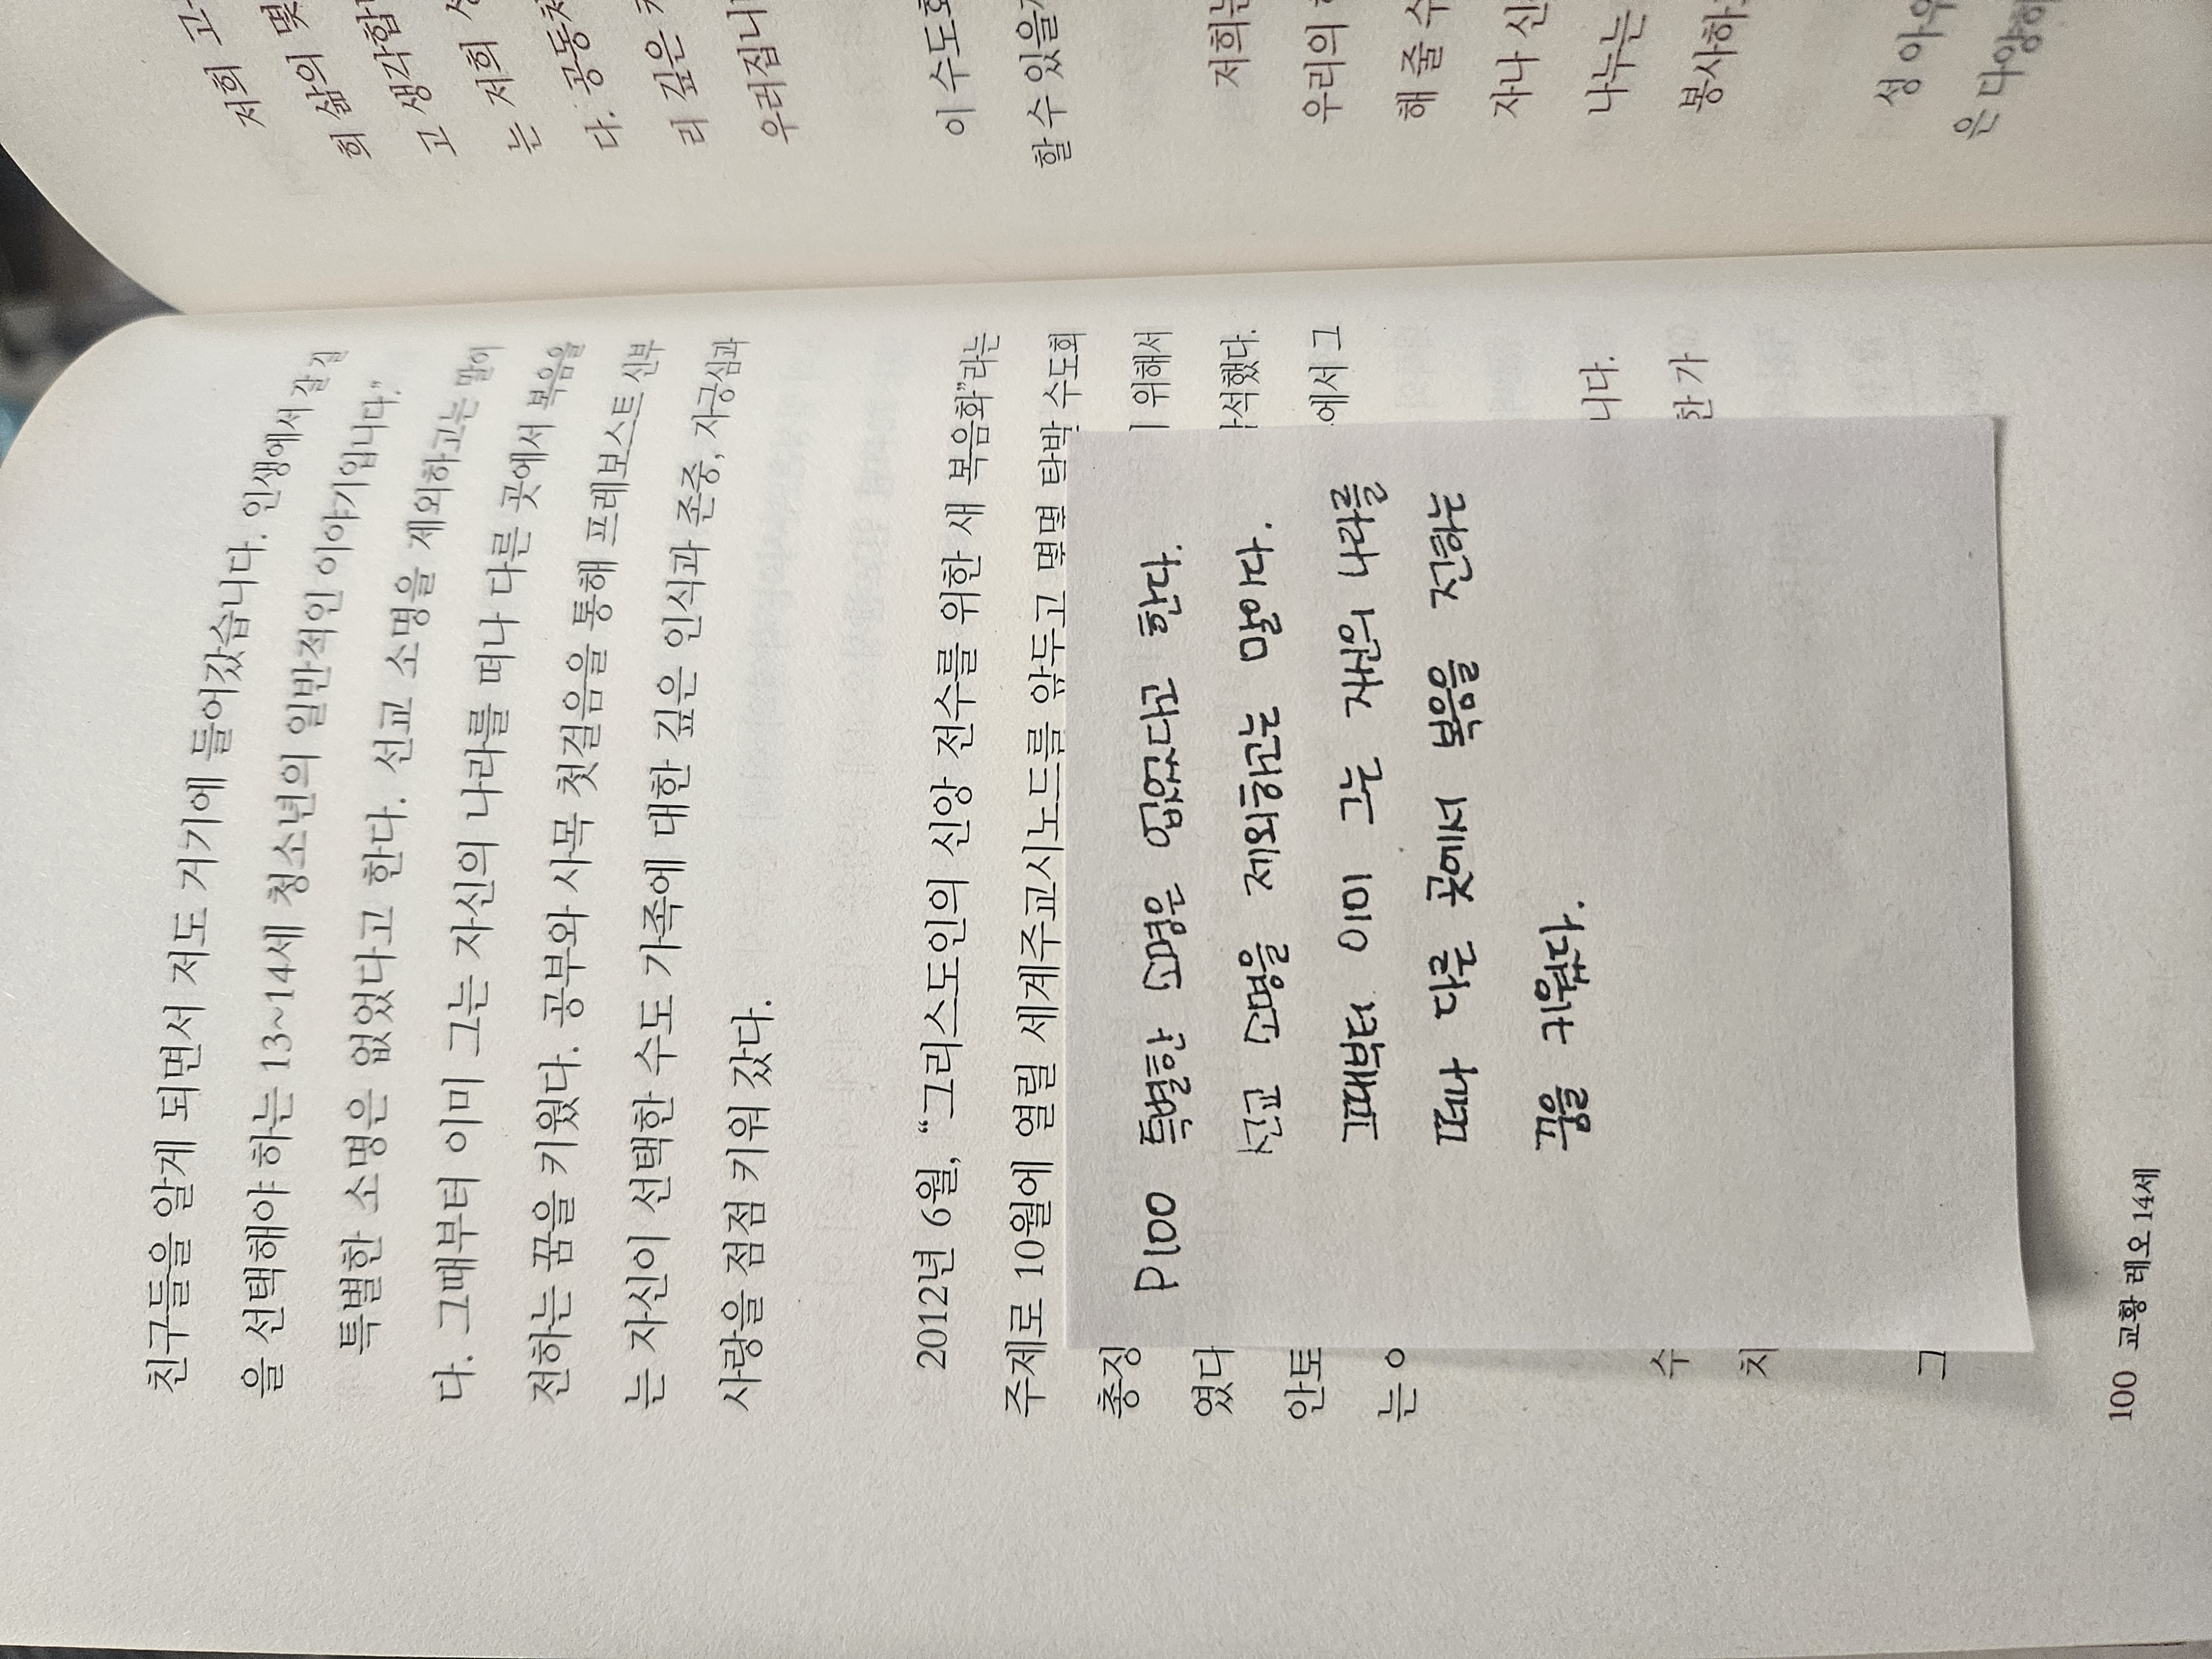 친구들을 알게 되면서 저도 거기에 들어갔습니다. 인생에서 갈 길
을 선택해야 하는 13~14세 청소년의 일반적인 이야기입니다.”
특별한 소명은 없었다고 한다. 선교 소명을 제외하고는 말이
다. 그때부터 이미 그는 자신의 나라를 떠나 다른 곳에서 복음을
전하는 꿈을 키웠다. 공부와 사목 첫걸음을 통해 프레보스트 신부
는 자신이 선택한 수도 가족에 대한 깊은 인식과 존중, 자긍심과
사랑을 점점 키워 갔다.
2012년 6월, “그리스도인의 신앙 전수를 위한 새 복음화”라는
주제로 10월에 열릴 세계주교시노드를 앞두고 몇몇 탄박 수도회
총장
위해서
였다
석했다.
안토
에서 그
는
니다.
수
한 가
치
그
P100 특별한 소명은 없었다고 한다.
선교 소명을 제외하고는 말이다.
그때부터 이미 그는 자신의 나라를
떠나 다른 곳에서 복음을 전하는
꿈을 키웠다.
100 교황 레오 14세
저희 고
희 삶의 몇
고 생각합
는 저희
다. 공동체
리 깊은
우러집니
이 수도회
할 수 있을까
저희는
우리의
해 줄 수
자나 신
나누는
봉사하
성 아우
은 다양하